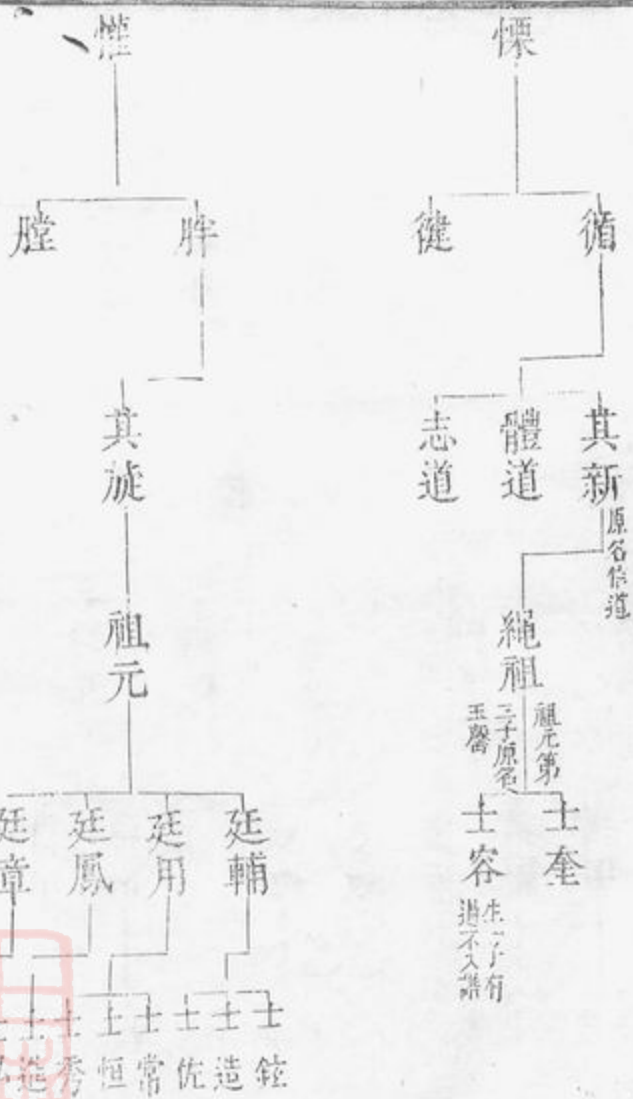 慄
循
健
其新
原名信道
體道
志道
繩祖
祖元第
三子原名
玉馨
士奎
士容
生一子有
過不入譜
惟
胖
膛
其旋
祖元
廷輔
廷用
廷鳳
廷章
士鉉
士造
士佐
士常
士恒
士秀
士
士